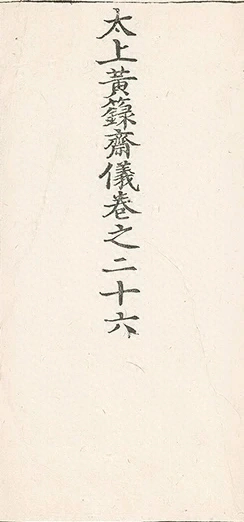 太上黃籙齋儀卷之二十六